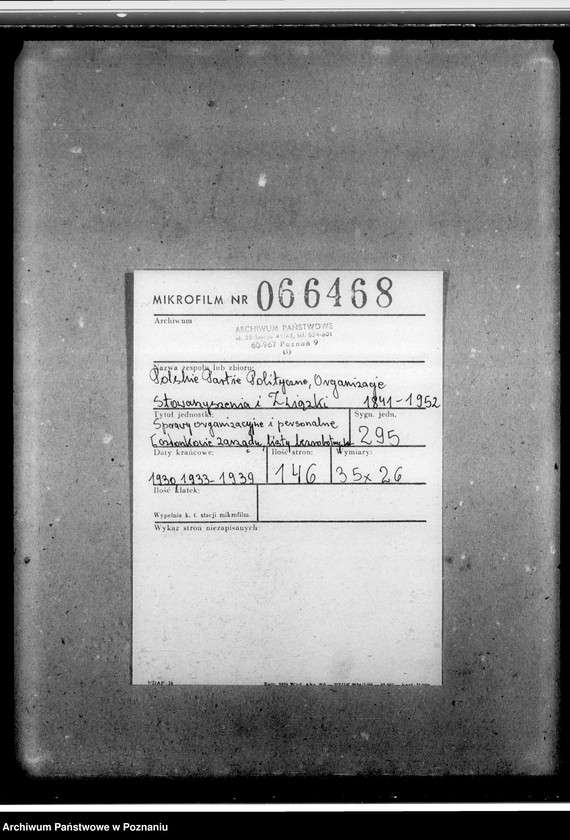 MIKROFILM NR 066468
Archiwum
ARCHIWUM PAŃSTWOWE
ul. 23 Lutego 41/43, tel. 524-601
60-967 Poznań 9
(1)
Nazwa zespołu lub zbioru:
Polskie Partie Polityczne, Organizacje
Stowarzyszenia i Związki 1841-1952
Tytuł jednostki: Sygn. jedn.
Sprawy organizacyjne i personalne 295
członkowie zarządu, listy bezrobotnych
Daty krańcowe: Ilość stron: Wymiary:
1930 1933-1939 146 35x26
Ilość klatek:
Wypełnia k. t. stacji mikrofilm.
Wykaz stron niezapisanych
Archiwum Państwowe w Poznaniu